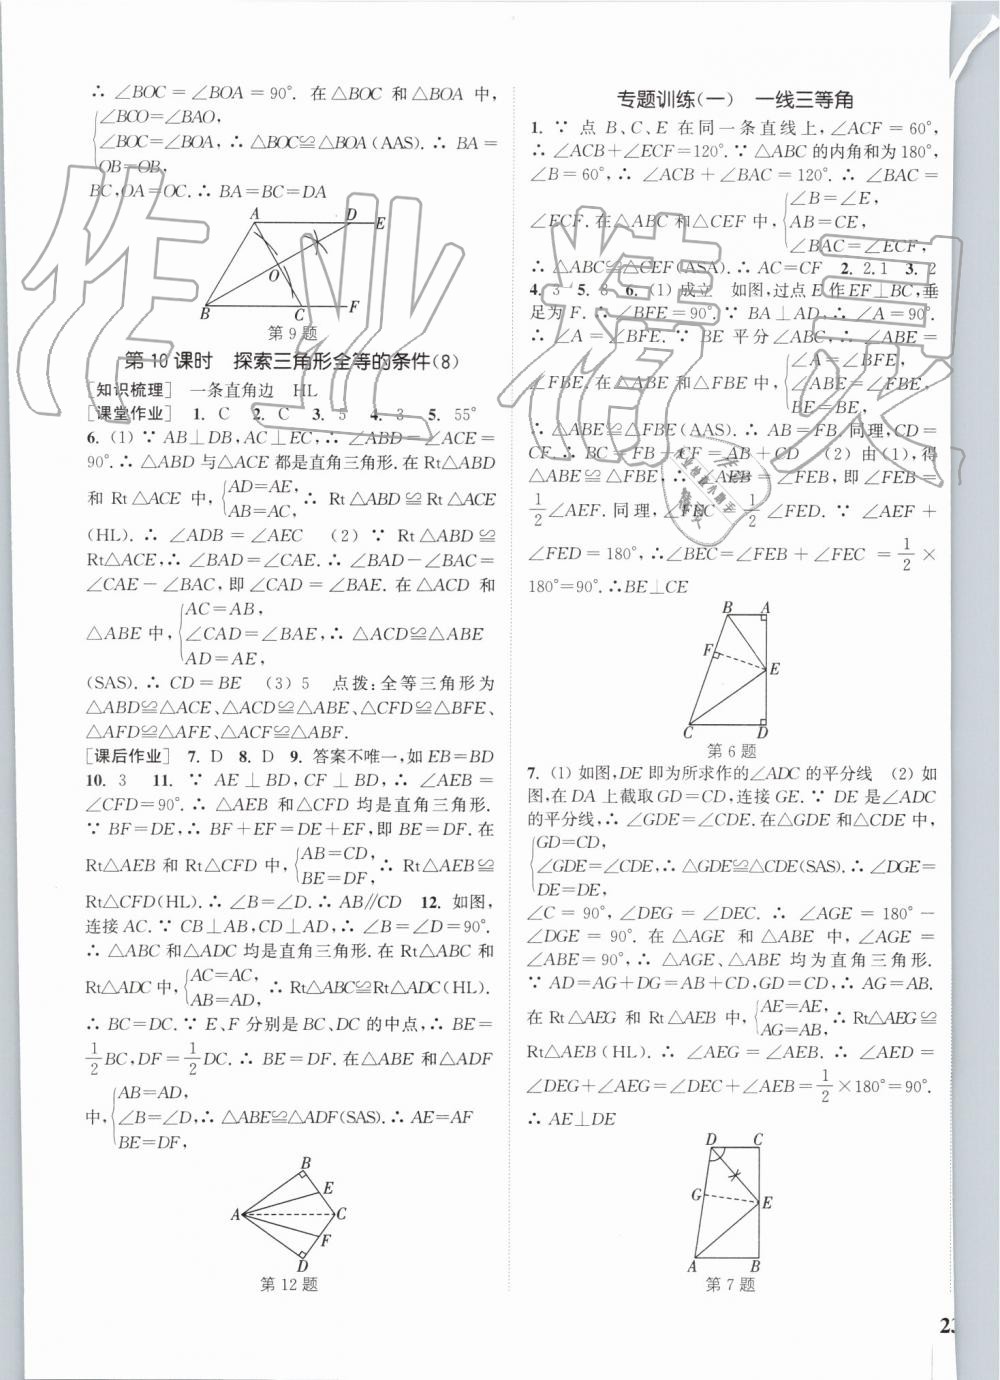 ∴ ∠BOC=∠BOA=90°. 在△BOC 和△BOA 中,
∠BCO=∠BAO,
∠BOC=∠BOA, ∴ △BOC≌△BOA(AAS). ∴ BA=
OB=OB,
BC,OA=OC.∴ BA=BC=DA
A D E
O
B C F
第9题
第10课时 探索三角形全等的条件(8)
[知识梳理] 一条直角边 HL
[课堂作业] 1. C 2. C 3. 5 4. 3 5. 55°
6. (1) ∵ AB⊥DB,AC⊥EC,∴ ∠ABD=∠ACE=
90°.∴ △ABD与△ACE都是直角三角形.在Rt△ABD
和 Rt△ACE 中,{AD=AE, AB=AC, ∴ Rt△ABD≌Rt△ACE
(HL). ∴ ∠ADB=∠AEC (2) ∵ Rt△ABD≌
Rt△ACE,∴ ∠BAD=∠CAE.∴ ∠BAD-∠BAC=
∠CAE-∠BAC,即∠CAD=∠BAE.在△ACD 和
AC=AB,
△ABE 中,∠CAD=∠BAE,∴ △ACD≌△ABE
AD=AE,
(SAS).∴ CD=BE (3) 5 点拨:全等三角形为
△ABD≌△ACE、△ACD≌△ABE、△CFD≌△BFE、
△AFD≌△AFE、△ACF≌△ABF.
[课后作业] 7. D 8. D 9. 答案不唯一,如EB=BD
10. 3 11. ∵ AE⊥BD,CF⊥BD,∴ ∠AEB=
∠CFD=90°.∴ △AEB 和△CFD 均是直角三角形.
∵ BF=DE,∴ BF+EF=DE+EF,即BE=DF.在
Rt△AEB 和 Rt△CFD 中,{AB=CD, BE=DF,∴ Rt△AEB≌
Rt△CFD(HL).∴ ∠B=∠D.∴ AB∥CD 12. 如图,
连接AC.∵ CB⊥AB,CD⊥AD,∴ ∠B=∠D=90°.
∴ △ABC 和△ADC 均是直角三角形.在Rt△ABC 和
Rt△ADC 中,{AC=AC, AB=AD,∴ Rt△ABC≌Rt△ADC(HL).
∴ BC=DC.∵ E、F 分别是BC、DC 的中点,∴ BE=
1/2BC,DF=1/2DC. ∴ BE=DF.在△ABE 和△ADF
AB=AD,
中,∠B=∠D,∴ △ABE≌△ADF(SAS).∴ AE=AF
BE=DF,
B
E
A C
F
D
第12题
专题训练(一) 一线三等角
1. ∵ 点 B、C、E 在同一条直线上,∠ACF=60°,
∴ ∠ACB+∠ECF=120°.∵ △ABC的内角和为180°,
∠B=60°,∴ ∠ACB+∠BAC=120°.∴ ∠BAC=
∠B=∠E,
∠ECF.在△ABC 和△CEF 中,AB=CE,
∠BAC=∠ECF,
∴ △ABC≌△CEF(ASA).∴ AC=CF 2. 2.1 3. 2
4. 3 5. 8 6. (1) 成立 如图,过点E作EF⊥BC,垂
足为F.∴ ∠BFE=90°.∵ BA⊥AD,∴ ∠A=90°.
∴ ∠A=∠BFE.∵ BE平分∠ABC,∴ ∠ABE=
∠A=∠BFE,
∠FBE.在△ABE 和△FBE 中,∠ABE=∠FBE,
BE=BE,
∴ △ABE≌△FBE(AAS).∴ AB=FB.同理,CD=
CF.∴ BC=FB+CF=AB+CD (2) 由(1),得
△ABE≌△FBE,∴ ∠AEB=∠FEB,即∠FEB=
1/2∠AEF.同理,∠FEC=1/2∠FED.∵ ∠AEF+
∠FED=180°,∴∠BEC=∠FEB+∠FEC=1/2×
180°=90°.∴BE⊥CE
B A
F
E
C D
第6题
7. (1) 如图,DE即为所求作的∠ADC的平分线 (2) 如
图,在DA上截取GD=CD,连接GE.∵ DE是∠ADC
的平分线,∴ ∠GDE=∠CDE.在△GDE和△CDE中,
GD=CD,
∠GDE=∠CDE,∴ △GDE≌△CDE(SAS).∴ ∠DGE=
DE=DE,
∠C=90°,∠DEG=∠DEC.∴ ∠AGE=180°-
∠DGE=90°.在△AGE 和△ABE 中,∠AGE=
∠ABE=90°,∴ △AGE、△ABE 均为直角三角形.
∵ AD=AG+DG=AB+CD,GD=CD,∴ AG=AB.
在Rt△AEG 和Rt△AEB 中,{AE=AE, AG=AB,∴Rt△AEG≌
Rt△AEB(HL).∴ ∠AEG=∠AEB.∴ ∠AED=
∠DEG+∠AEG=∠DEC+∠AEB=1/2×180°=90°.
∴ AE⊥DE
D C
G E
A B
第7题